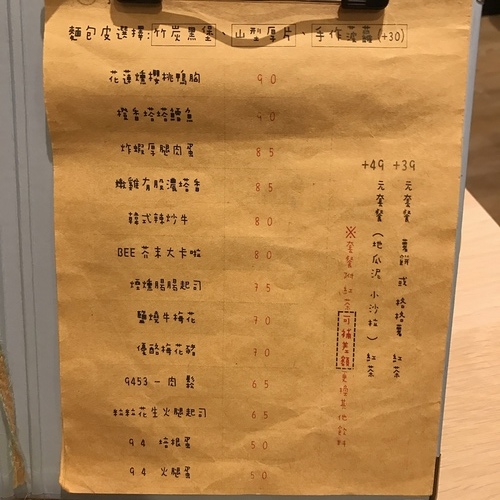 麵包皮選擇:竹炭黑堡、山型厚片、手作菠蘿(+30)
花蓮燻櫻桃鴨胸 90
橙香塔塔鱈魚 90
炸蝦厚腿肉蛋 85
嫩雞有股濃塔香 85
韓式辣炒牛 80
BEE 芥末大卡啦 80
煙燻腸腸起司 75
鹽燒牛梅花 70
優酪梅花豬 70
9453-肉鬆 65
粒粒花生火腿起司 65
94 培根蛋 50
94 火腿蛋 50
+39元套餐 薯餅或格格薯 紅茶
+49元套餐(地瓜泥小沙拉)紅茶
※套餐附紅茶可補差額更換其他飲料